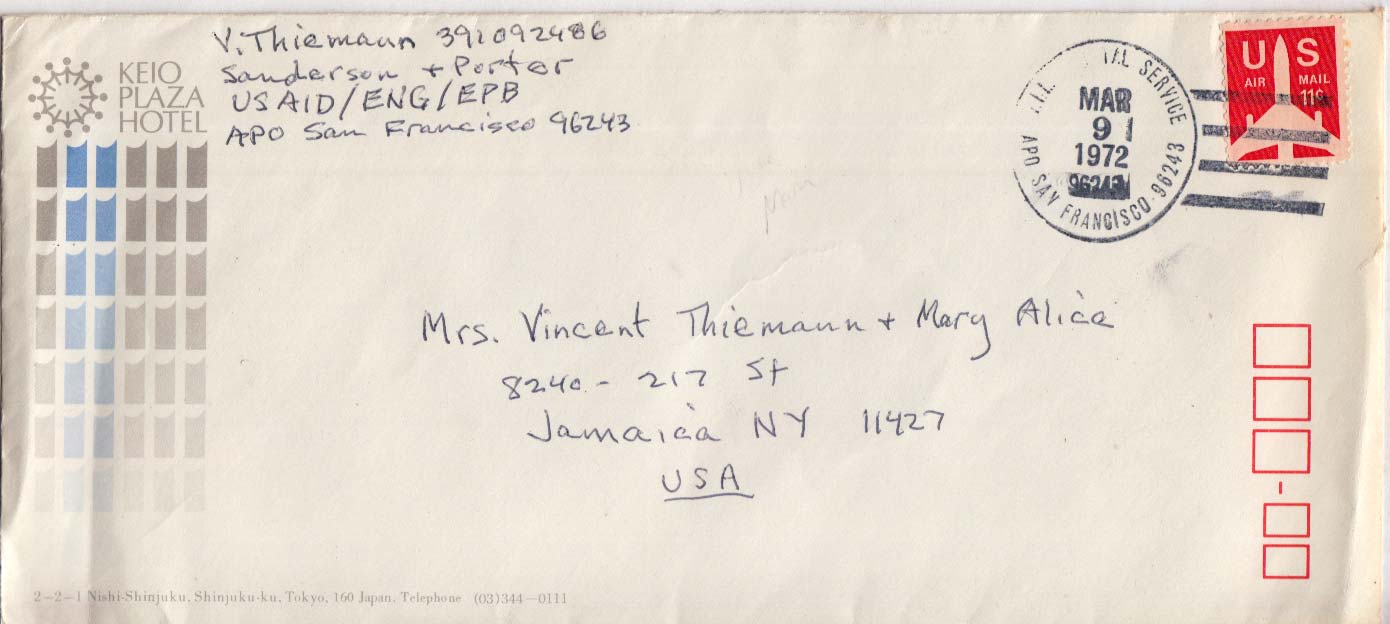 V. Thiemann 391092486
Sanderson + Porter
USAID/ENG/EPB
APO San Francisco 96243
KEIO
PLAZA
HOTEL
SERVICE
MAR
9
1972
96243
APO SAN FRANCISCO 96243
US
AIR MAIL
11¢
Mrs. Vincent Thiemann + Mary Alice
8240 - 217 St
Jamaica NY 11427
USA
2-2-1 Nishi-Shinjuku, Shinjuku-ku, Tokyo, 160 Japan. Telephone (03)344-0111